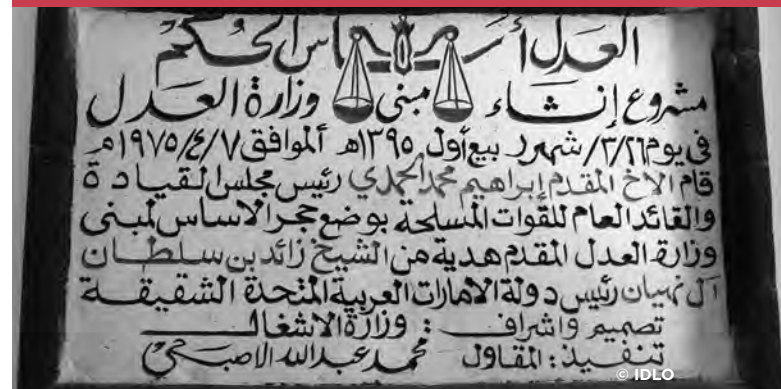 العدل أساس الحكم
مشروع إنشاء مبنى وزارة العدل
فى يوم ٣/٢٦/ شهر ربيع أول ١٣٩٥هـ ألموافق ١٩٧٥/٤/٧م
قام الاخ المقدم إبراهيم محمد الحمدي رئيس مجلس القيادة
والقائد العام للقوات المسلحة بوضع حجر الاساس لمبنى
وزارة العدل المقدم هدية من الشيخ زائد بن سلطان
آل نهيان رئيس دولة الامارات العربية المتحدة الشقيقة
تصميم واشراف : وزارة الاشغال
تنفيذ : المقاول محمد عبدالله الاصبحي
© IDLO